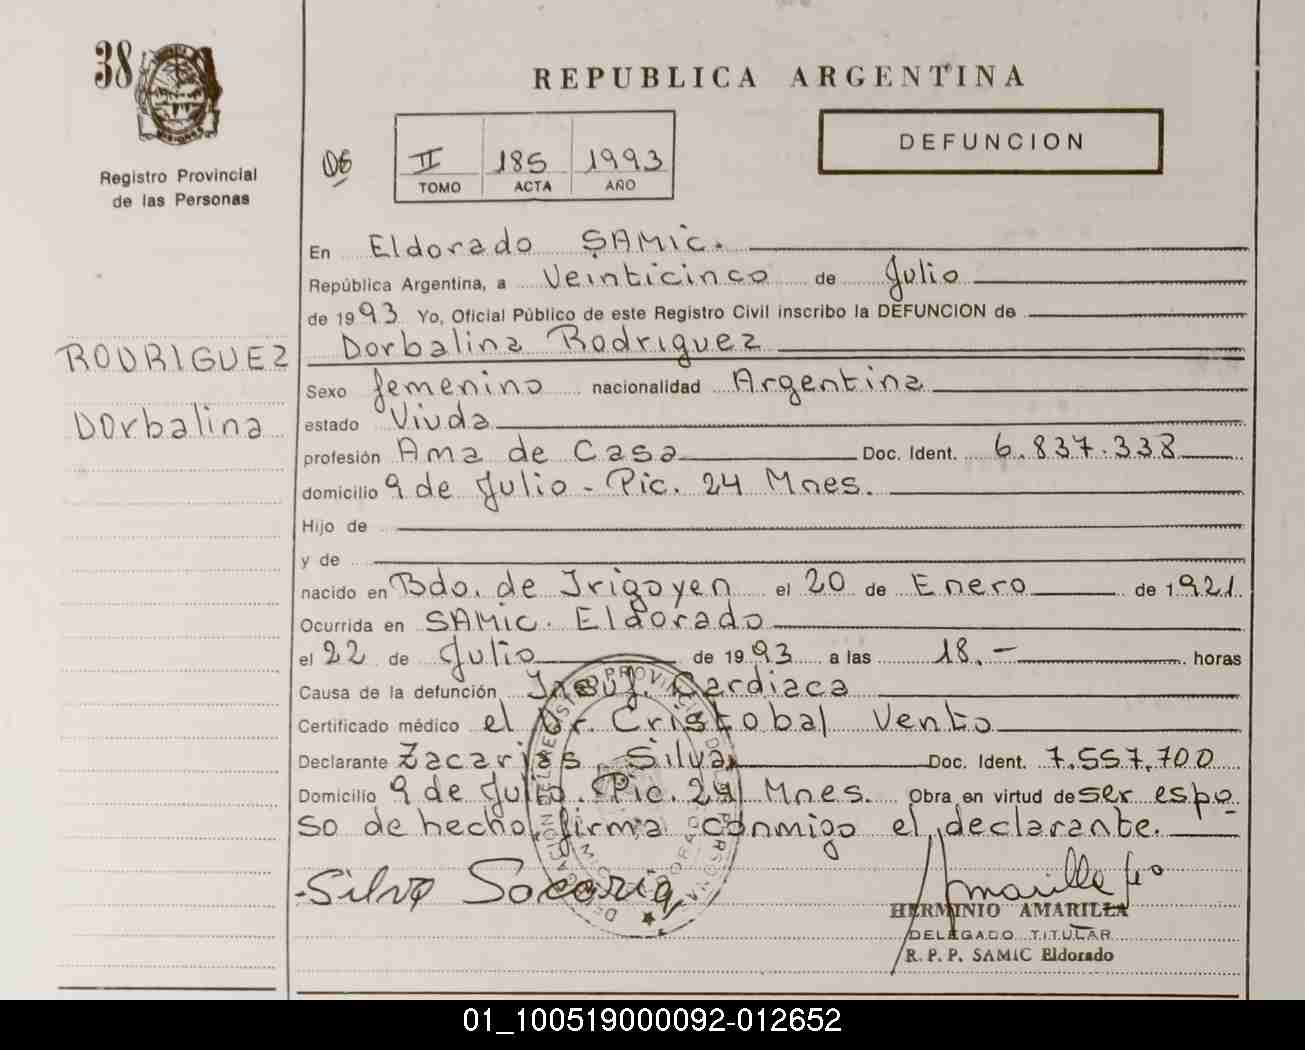 38
Registro Provincial
de las Personas
REPUBLICA ARGENTINA
DEFUNCION
06 II 185 1993
TOMO ACTA AÑO
En Eldorado SAMIC.
República Argentina, a Veinticinco de Julio
de 1993 Yo, Oficial Público de este Registro Civil inscribo la DEFUNCION de
Dorbalina Rodriguez
RODRIGUEZ
Dorbalina
Sexo femenino nacionalidad Argentina
estado Viuda
profesión Ama de Casa Doc. Ident. 6.837.338
domicilio 9 de Julio - Pic. 24 Mnes.
Hijo de
y de
nacido en Bdo. de Irigoyen el 20 de Enero de 1921
Ocurrida en SAMIC. Eldorado
el 22 de Julio de 1993 a las 18.- horas
Causa de la defunción Insuf. Cardiaca
Certificado médico el Dr. Cristobal Vento
Declarante Zacarias Silva Doc. Ident. 7.557.700
Domicilio 9 de Julio. Pic. 24 Mnes. Obra en virtud de ser espo
so de hecho, firma conmigo el declarante.
Silva Socaria
HERMINIO AMARILLA
DELEGADO TITULAR
R. P. P. SAMIC Eldorado
01_100519000092-012652